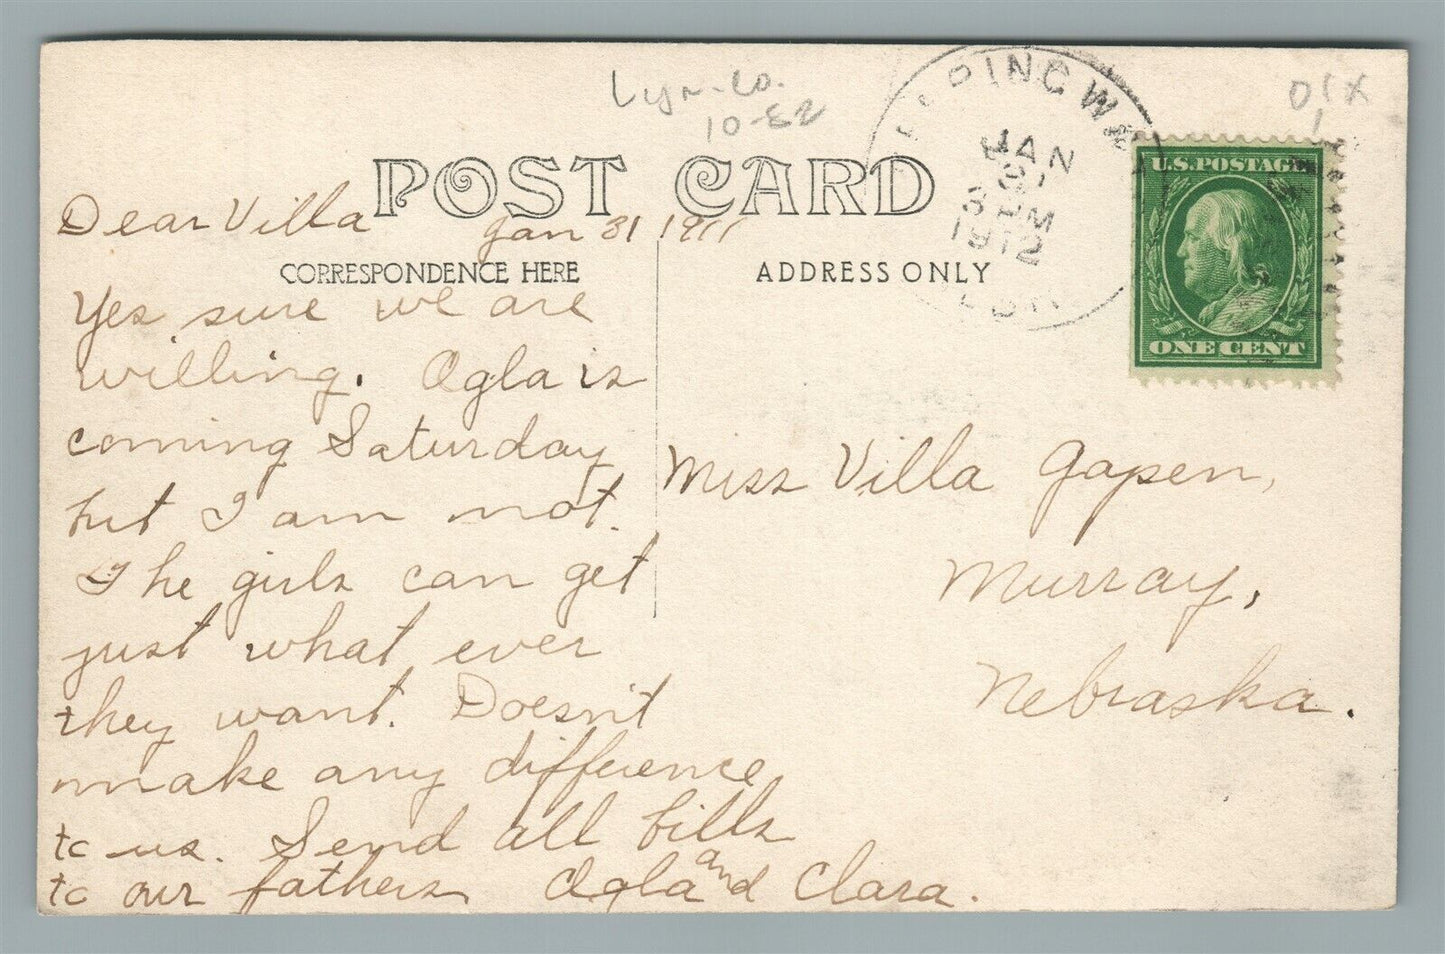 Lyn. Co.
10-82
DIX
1
WEEPING WA
JAN
31
3 PM
1912
POST CARD
U.S. POSTAGE
ONE CENT
Dear Villa
Jan 31 1911
CORRESPONDENCE HERE
ADDRESS ONLY
Yes sure we are
willing. Ogla is
coming Saturday
but I am not.
The girls can get
just what ever
they want. Doesn't
make any difference
to us. Send all bills
to our fathers Ogla and Clara.
Miss Villa Gapen,
Murray,
Nebraska.